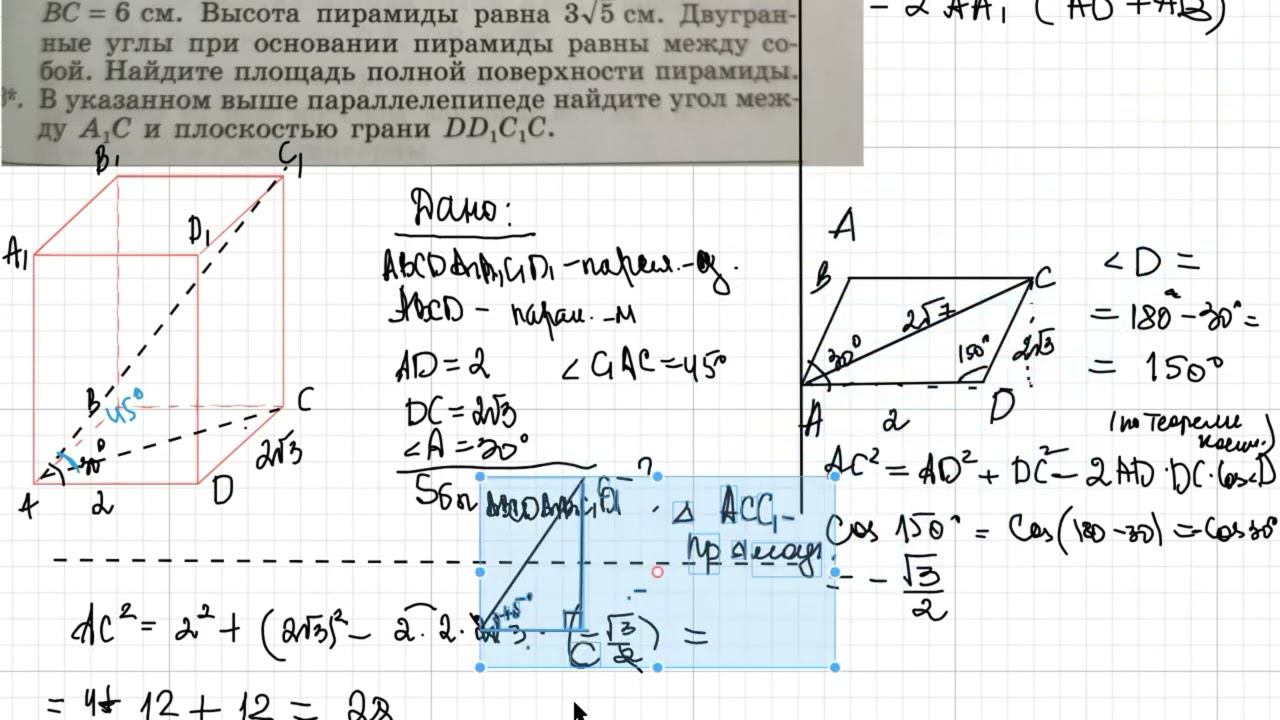 BC = 6 см. Высота пирамиды равна 3√5 см. Двугран-
ные углы при основании пирамиды равны между со-
бой. Найдите площадь полной поверхности пирамиды.
*. В указанном выше параллелепипеде найдите угол меж-
ду A₁C и плоскостью грани DD₁C₁C.
- 2 AA₁ (AD + AB)
B₁
C₁
A₁
D₁
B
45°
C
30°
2√3
A
2
D
Дано:
ABCD – парал. –м
AD = 2 ∠C₁AC = 45°
DC = 2√3
∠A = 30°
?
△ ACC₁ –
45°
C
A
B
C
2√7
30°
150°
2√3
A
2
D
∠D =
= 180° – 30° =
= 150°
AC² = AD² + DC² – 2AD · DC · cos∠D
Cos 150° = Cos(180 – 30) = –Cos 30°
= – √3/2
AC² = 2² + (2√3)² – 2 · 2 · 2√3 · (– √3/2) =
= 4 + 12 + 12 = 28